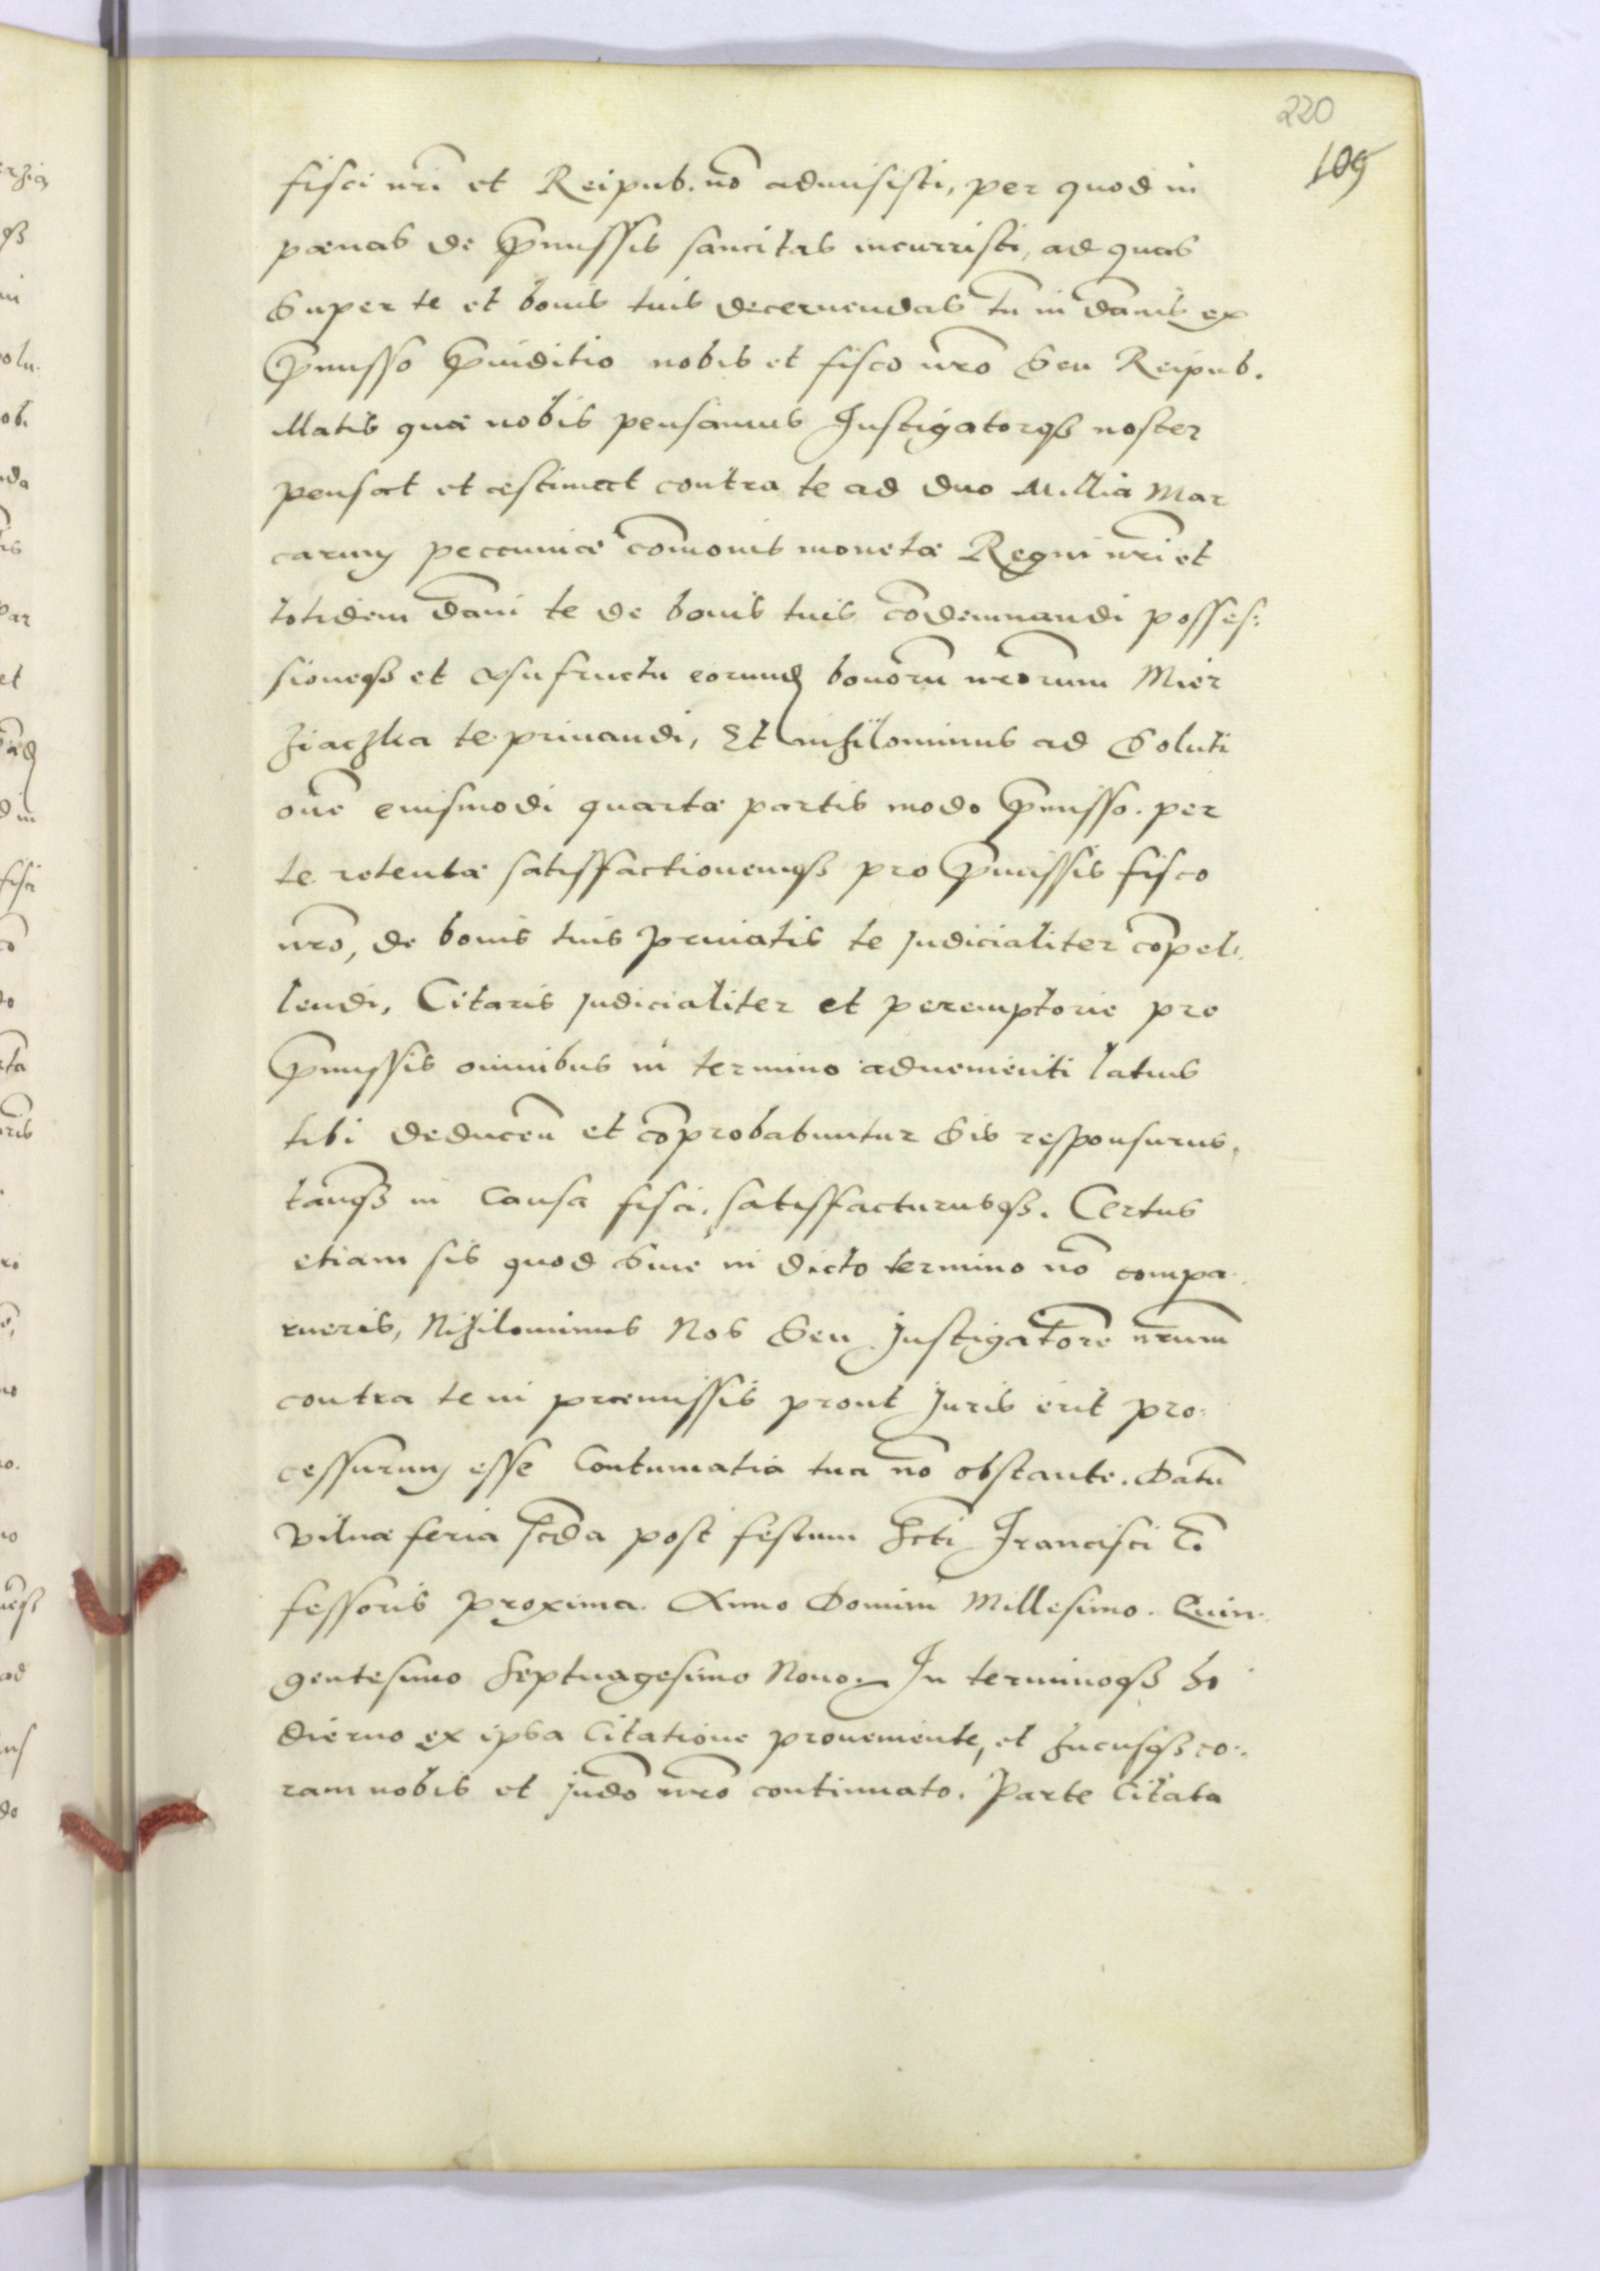 220
109
fisci nr̄i et Reipub. nō admisisti, per quod in
pœnas de p̄missis sancitas incurristi, ad quas
super te et bonis tuis decernendas tn̄ in dānis ex
p̄misso p̄iuditio nobis et fisco nr̄o seu Reipub.
illatis quæ nobis pensamus Instigatorqȝ noster
pensat et æstimat contra te ad duo Millia Mar
carum peccuniæ com̄onis monetæ Regni nr̄i et
totidem dāni te de bonis tuis cōdemnandi posses:
sioneqȝ et usufructu eorund bonorū nr̄orum Mier
ziaczka te priuandi, Et nihilominus ad soluti
onē eiusmodi quartæ partis modo p̄misso per
te retentæ satisfactionemqȝ pro p̄missis fisco
nr̄o, de bonis tuis priuatis te judicialiter cōpel
lendi, Citaris judicialiter et peremptorie pro
p̄missis omnibus in termino aduenienti latius
tibi deducen̄ et cōprobabuntur sis responsurus,
tanqȝ in causa fisci, satisfacturusqȝ. Certus
etiam sis quod siue in dicto termino nō compa
rueris, Nihilominus Nos seu Instigatorē nr̄um
contra te in præmissis prout Juris erit pro:
cessurum esse Contumatia tua nō obstante. Datū
Vilnæ feria scd̄a post festum Scti Francisci Cō
fessoris proxima. Anno Domini Millesimo. Quin
gentesimo Septuagesimo Nono. In terminoqȝ ho
dierno ex ipsa Citatione proueniente, et hucusqȝ co:
ram nobis et judō nr̄o continuato. Parte Citata